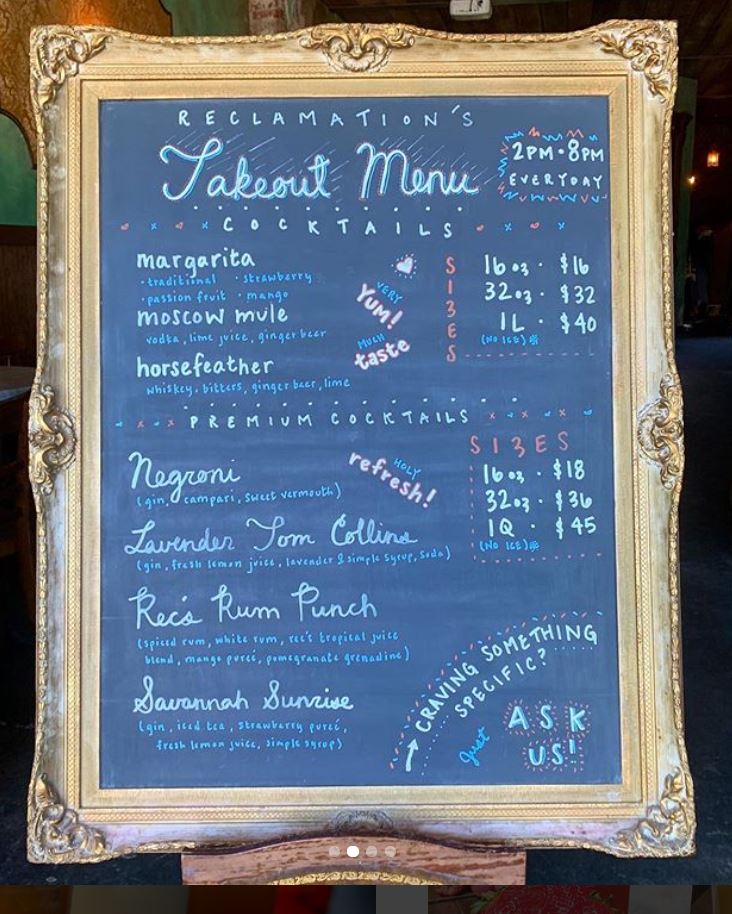 RECLAMATION'S
Takeout Menu
2PM-8PM
EVERYDAY
COCKTAILS
margarita
• traditional • strawberry
• passion fruit • mango
moscow mule
vodka, lime juice, ginger beer
horsefeather
whiskey, bitters, ginger beer, lime
VERY
YUM!
MUCH
taste
SIZES
16oz • $16
32oz • $32
1L • $40
(NO ICE)
PREMIUM COCKTAILS
Negroni
(gin, campari, sweet vermouth)
Lavender Tom Collins
(gin, fresh lemon juice, lavender & simple syrup, soda)
Rec's Rum Punch
(spiced rum, white rum, rec's tropical juice
blend, mango pureé, pomegranate grenadine)
Savannah Sunrise
(gin, iced tea, strawberry pureé,
fresh lemon juice, simple syrup)
HOLY
refresh!
SIZES
16oz • $18
32oz • $36
1Q • $45
(NO ICE)
CRAVING SOMETHING
SPECIFIC?
Just
ASK
US!